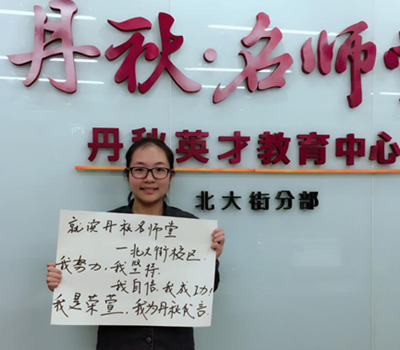 丹秋·名师堂
丹秋英才教育中心
北大街分部
就读丹秋名师堂
—北大街校区
我努力,我坚持
我自信,我成功,
我是荣萱,我为丹秋代言.